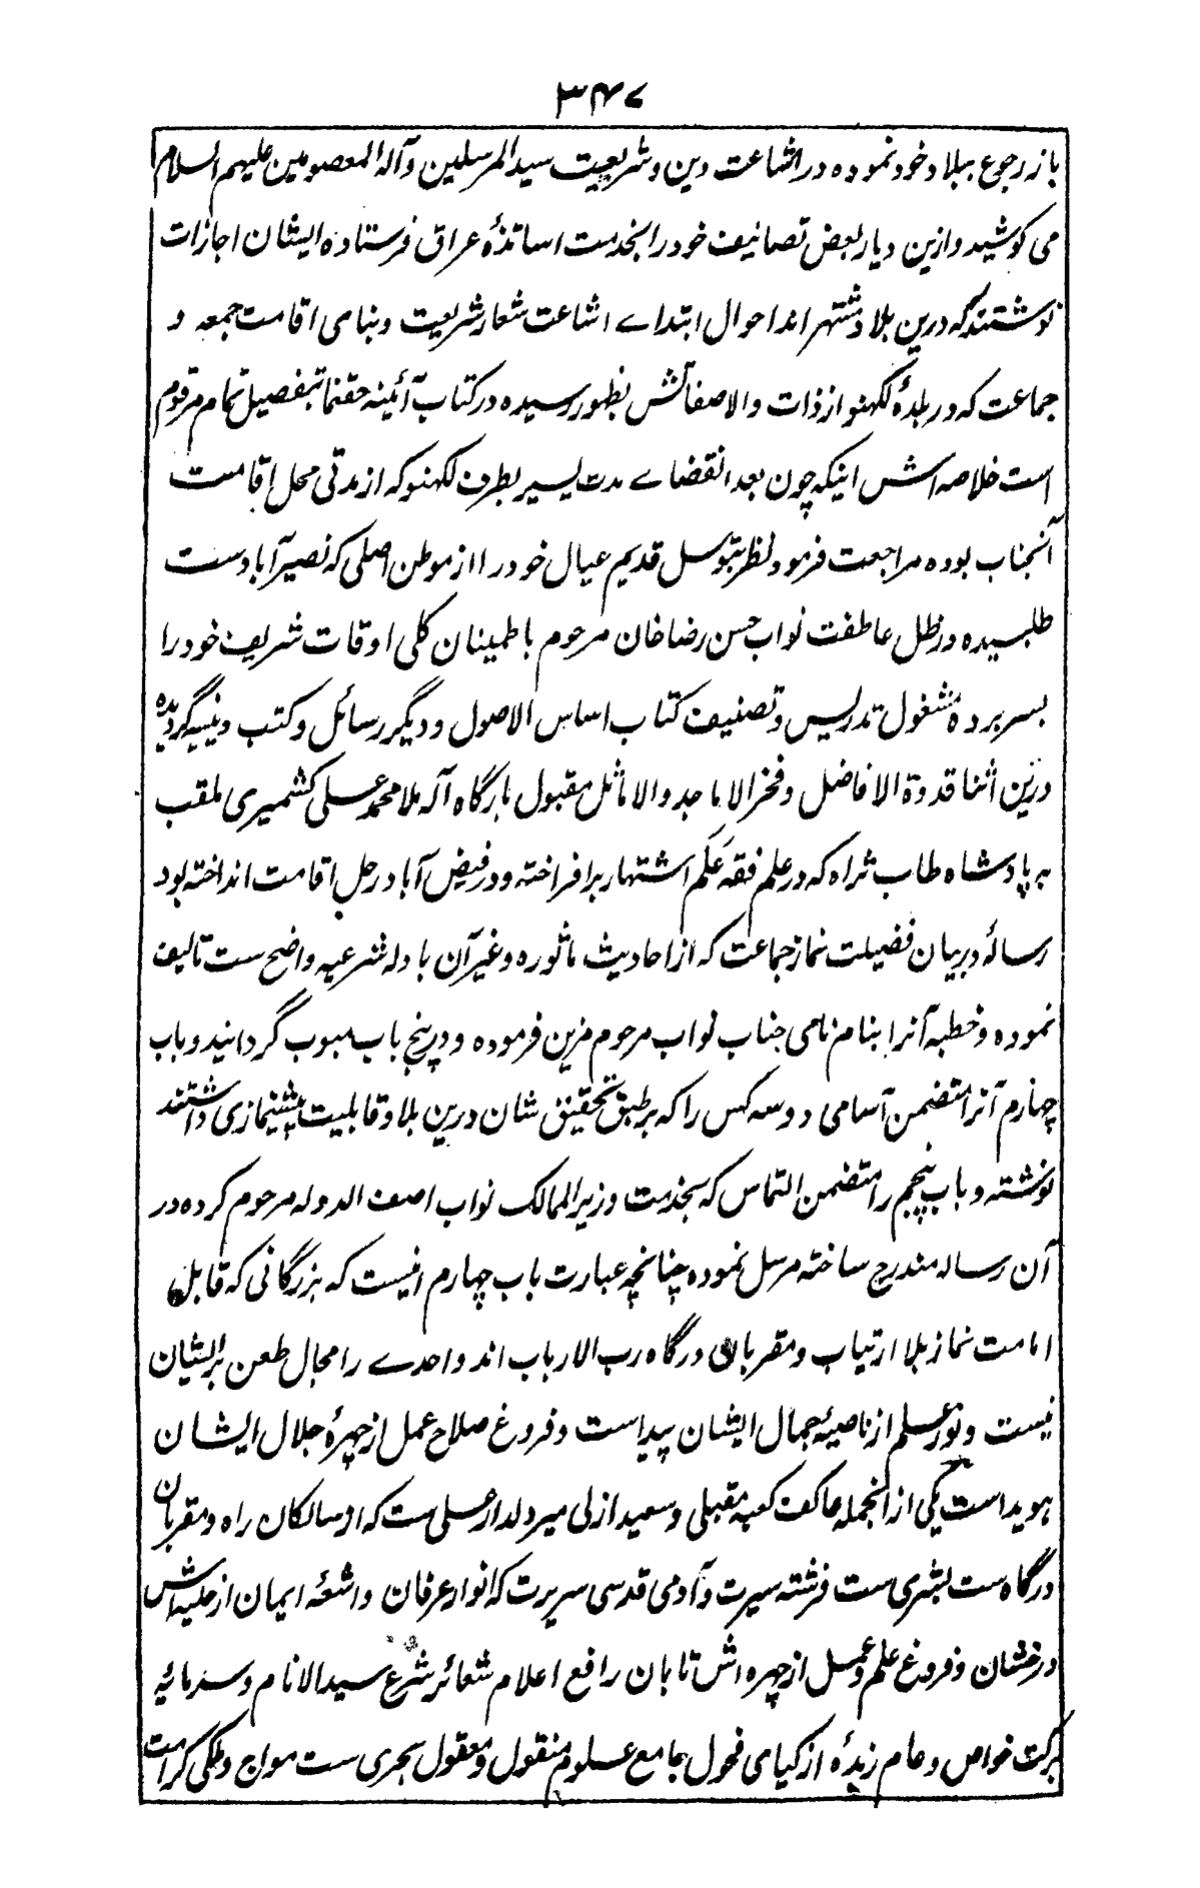 ۳۴۷
باز رجوع ببلاد خود نموده در اشاعت دین و شریعت سید المرسلین و آله المعصومین علیهم السلام
می کوشید و ازین دیار بعض تصانیف خود را بخدمت اساتذهٔ عراق فرستاده ایشان اجازات
نوشتند که درین بلاد مشتهر اند احوال ابتداے اشاعت شعار شریعت و بنای اقامت جمعه و
جماعت که در بلدهٔ لکهنو از ذات والا صفاتش بظهور رسیده در کتاب آئینه حقنما بتفصیل تمام مرقوم
است خلاصه اش اینکه چون بعد انقضاے مدت یسیر بطرف لکهنو که از مدتی محل اقامت
آنجناب بوده مراجعت فرمود نظر بتوسل قدیم عیال خود را از موطن اصلی که نصیرآبادست
طلبیده در ظل عاطفت نواب حسن رضا خان مرحوم باطمینان کلی اوقات شریف خود را
بسر برده مشغول تدریس و تصنیف کتاب اساس الاصول و دیگر رسائل و کتب دینیه گردیده
درین اثنا قدوة الافاضل و فخر الاماجد والاماثل مقبول بارگاه آله ملا محمد علی کشمیری ملقب
بر پادشاه طاب ثراه که در علم فقه عَلَم اشتهار برافراخته و در فیض آباد رحل اقامت انداخته بود
رسالهٔ در بیان فضیلت نماز جماعت که از احادیث ماثوره و غیر آن بادله شرعیه واضح ست تالیف
نموده و خطبه آنرا بنام نامی جناب نواب مرحوم مزین فرموده و در پنج باب مبوب گردانید و باب
چهارم آنرا متضمن آسامی دو سه کس را که بر طبق تحقیق شان درین بلاد قابلیت پیشنمازی داشتند
نوشته و باب پنجم را متضمن التماس که بخدمت وزیر الممالک نواب اصف الدوله مرحوم کرده در
آن رساله مندرج ساخته مرسل نموده چنانچه عبارت باب چهارم اینست که بزرگانی که قابل
امامت نماز بلا ارتیاب و مقربان درگاه رب الارباب اند و احدے را مجال طعن بر ایشان
نیست و نور علم از ناصیهٔ جمال ایشان پیداست و فروغ صلاح عمل از چهرهٔ جلال ایشان
هویداست یکی از انجمله عاکف کعبه مقبلی و سعید ازلی میر دلدار علی ست که از سالکان راه و مقربان
درگاه ست بشری ست فرشته سیرت و آدمی قدسی سریرت که انوار عرفان و اشعهٔ ایمان از حلیه اش
درخشان و فروغ علم و عمل از چهره اش تابان رافع اعلام شعائر شرع سید الانام و سرمایهٔ
برکت خواص و عام زبدهٔ ازکیای فحول جامع علوم منقول و معقول بحری ست مواج و ملکی کرامت